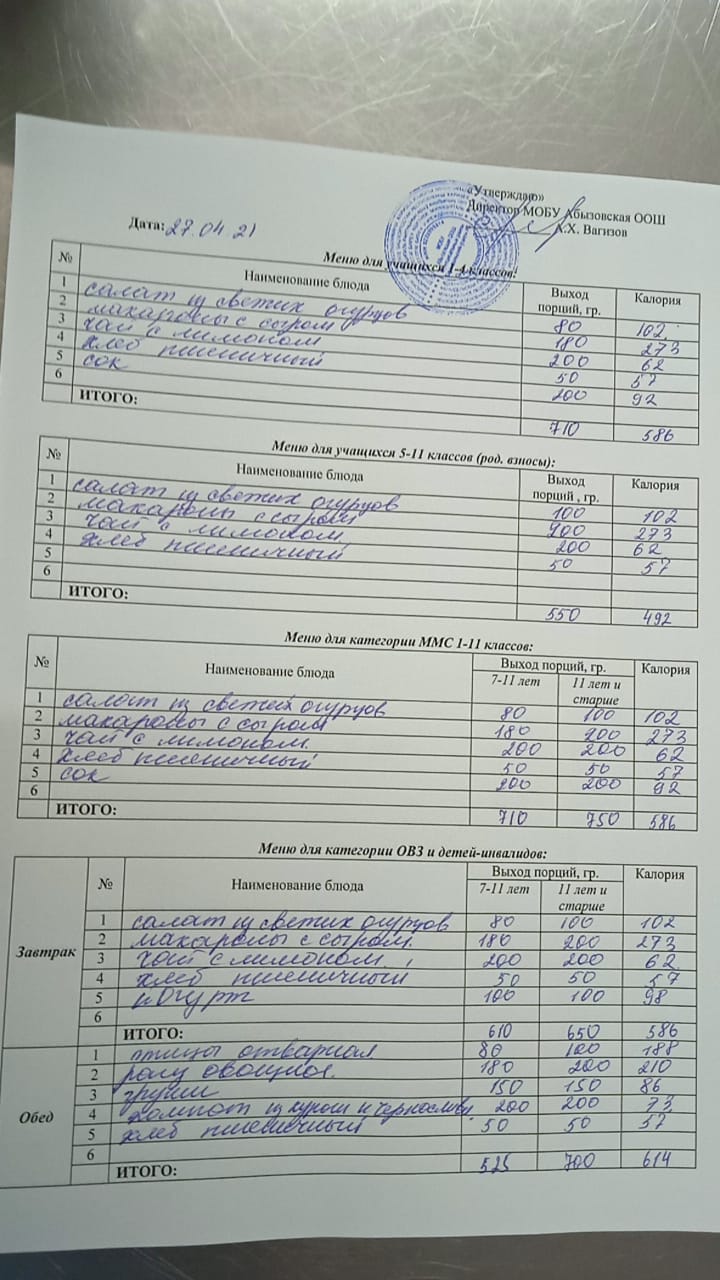 «Утверждаю»
Директор МОБУ Абызовская ООШ
А.Х. Вагизов
Дата: 27.04 21
Меню для учащихся 1-4 классов:
№ Наименование блюда Выход порций, гр. Калория
1 салат из светих огурцов 80 102
2 макароны с сыром 180 273
3 чай с лимоном 200 62
4 хлеб пшеничный 50 57
5 сок 200 92
6
ИТОГО: 710 586
Меню для учащихся 5-11 классов (род. взносы):
№ Наименование блюда Выход порций , гр. Калория
1 салат из светих огурцов 100 102
2 макароны с сыром 200 273
3 чай с лимоном 200 62
4 хлеб пшеничный 50 57
5
6
ИТОГО: 550 492
Меню для категории ММС 1-11 классов:
№ Наименование блюда Выход порций, гр. Калория
7-11 лет 11 лет и старше
1 салат из светих огурцов 80 100 102
2 макароны с сыром 180 200 273
3 чай с лимоном. 200 200 62
4 хлеб пшеничный 50 50 57
5 сок 200 200 92
6
ИТОГО: 710 750 586
Меню для категории ОВЗ и детей-инвалидов:
№ Наименование блюда Выход порций, гр. Калория
7-11 лет 11 лет и старше
Завтрак
1 салат из светих огурцов 80 100 102
2 макароны с сыром. 180 200 273
3 чай с лимоном 200 200 62
4 хлеб пшеничный 50 50 57
5 йогурт 100 100 98
6
ИТОГО: 610 650 586
Обед
1 птицы отварная 80 100 188
2 рагу овощное. 180 200 210
3 груши 150 150 86
4 компот из кураги и чернослива 200 200 73
5 хлеб пшеничный 50 50 57
6
ИТОГО: 525 700 614